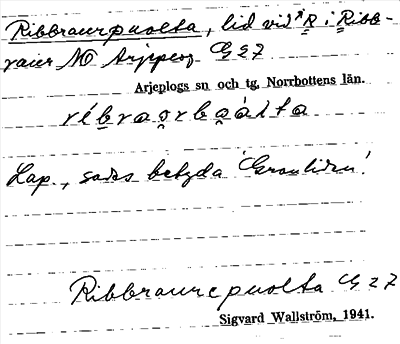 Ribbraurepuolta, lid vid "R i Ribb-
raur NO Arjeplog. G 27
Arjeplogs sn och tg, Norrbottens län.
Lap., sades betyda 'Granliden'.
Ribbraurepuolta G 27
Sigvard Wallström, 1941.